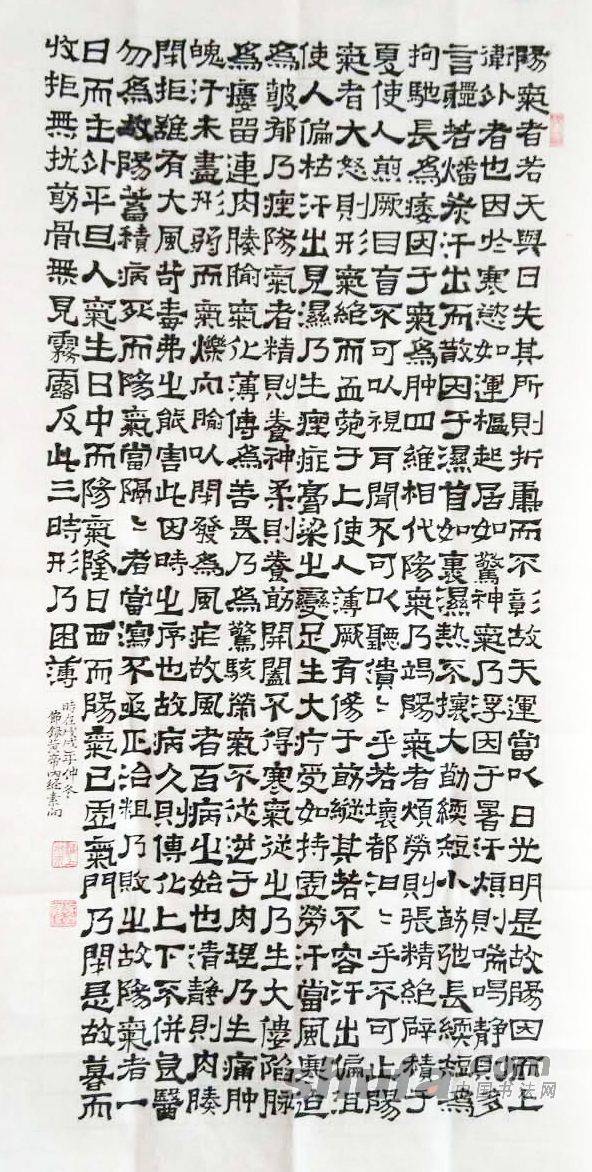 陽氣者若天與日失其所則折壽而不彰故天運當以日光明是故陽因而上
衛外者也因於寒慾如運樞起居如驚神氣乃浮因于暑汗煩則喘喝靜則多
言體若燔炭汗出而散因于濕首如裹濕熱不攘大筋緛短小筋弛長緛短為
拘馳長為痿因于氣為肿四維相代陽氣乃竭陽氣者煩勞則張精絕辟積于
夏使人煎厥目盲不可以視耳聞不可以聽潰〻乎若壞都汩〻乎不可止陽
氣者大怒則形氣絕而血菀于上使人薄厥有傷于筋縱其若不容汗出偏沮
使人偏枯汗出見濕乃生痤疿膏梁之變足生大疔受如持虛勞汗當風寒迫
為皶郁乃痤陽氣者精則養神柔則養筋開闔不得寒氣從之乃生大僂陷脈
為瘻留連肉腠腧氣化薄傳為善畏乃為驚駭營氣不從逆于肉理乃生痈肿
魄汗未盡形弱而氣爍穴腧以閉發為風疟故風者百病之始也清靜則肉腠
閉拒雖有大風苛毒弗之能害此因時之序也故病久則傳化上下不併良醫
勿為故陽蓄積病死而陽氣當隔〻者當瀉不亟正治粗乃敗之故陽氣者一
日而主外平旦人氣生日中而陽氣隆日西而陽氣已虛氣門乃閉是故暮而
收拒無擾筋骨無見霧露反此三時形乃困薄
時在戊戌年仲冬
節錄黃帝內經素問
shufa.com
中国书法网